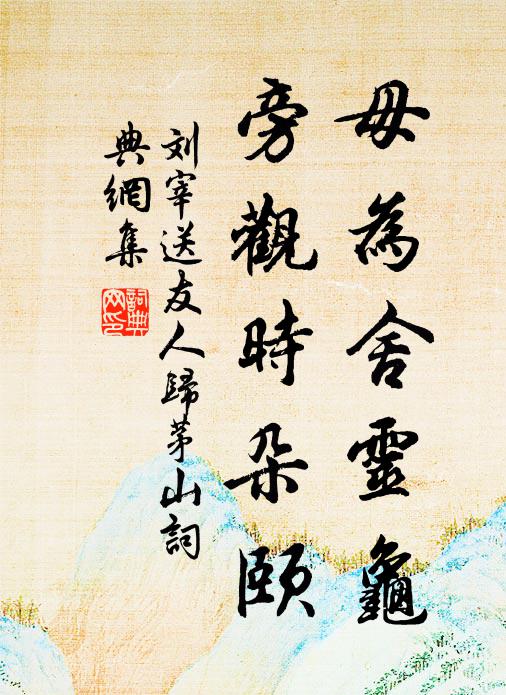 毋為舍靈龜
旁觀時朵頤
刘宰送友人歸茅山詞
典網集
詞典網印